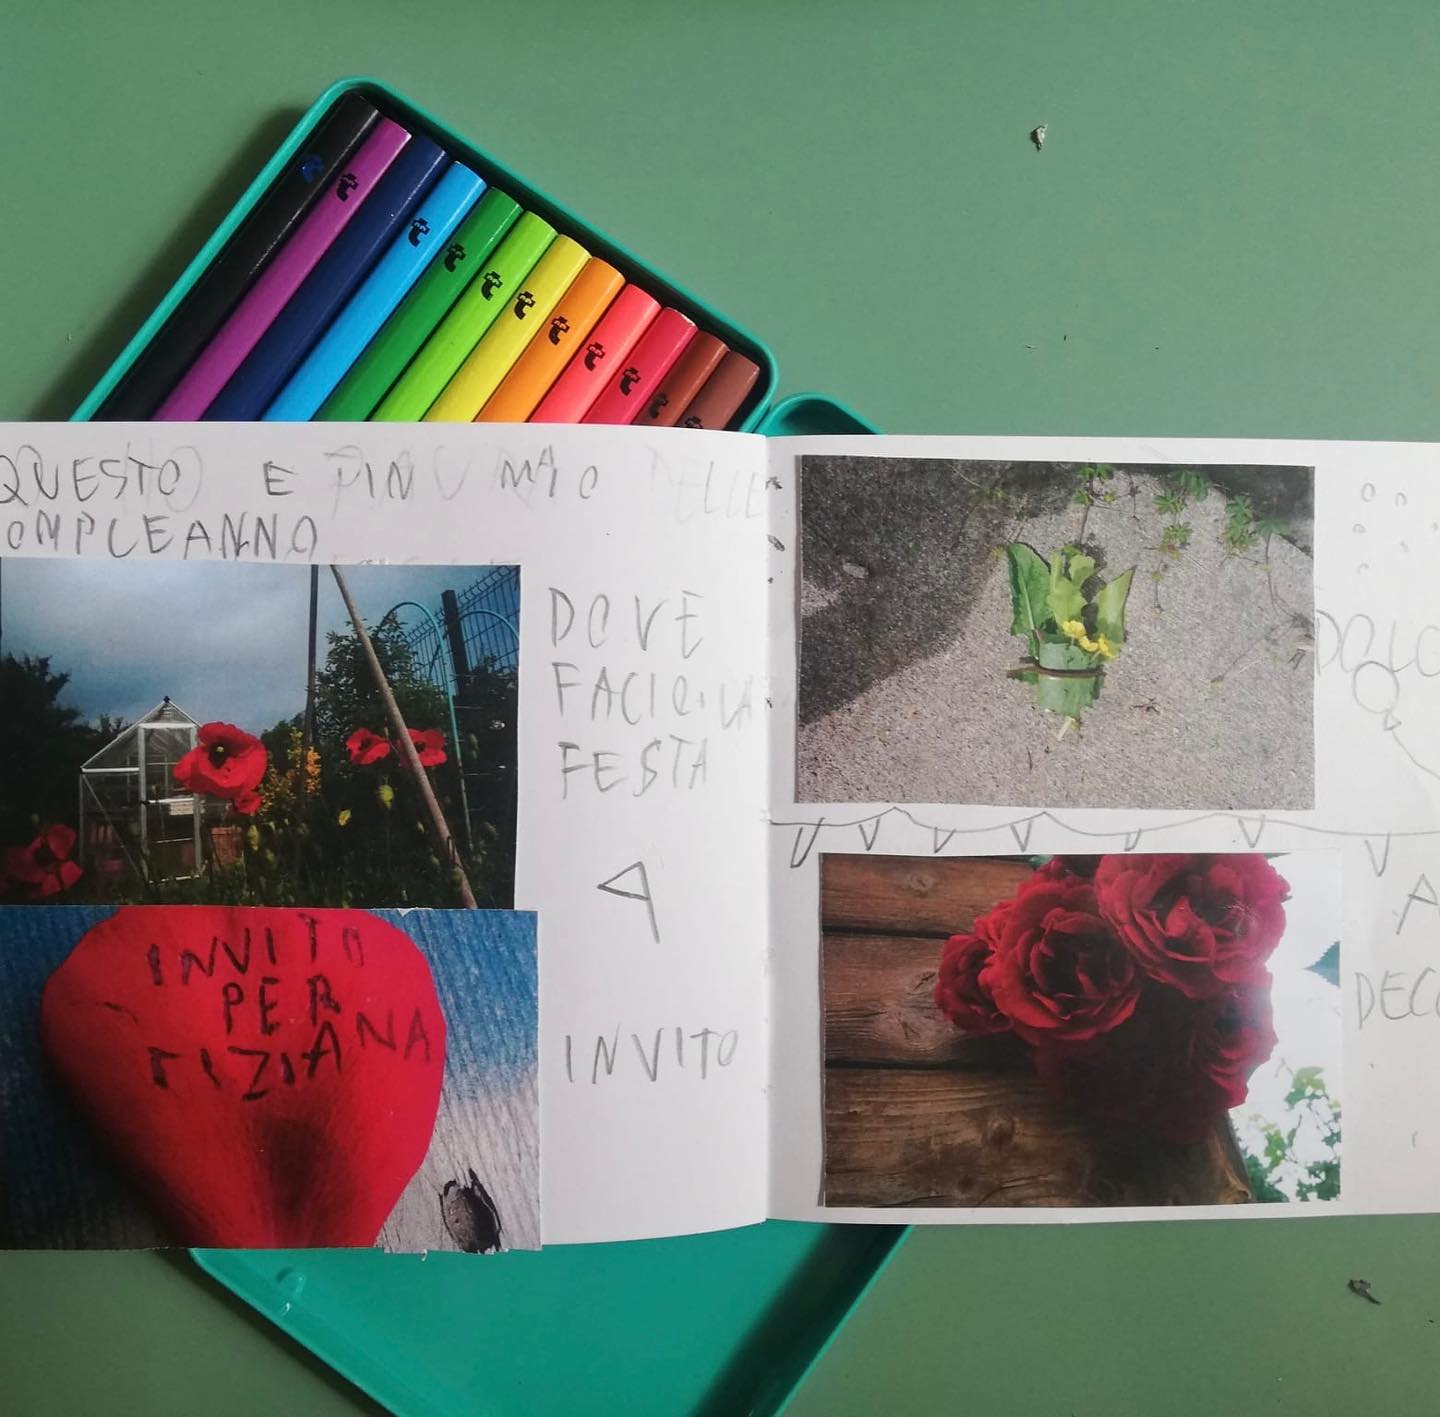 QUESTO E PIN MIO DELLE
OMPLEANNO
DOVE
FACIO LA
FESTA
INVITO
PER
TIZIANA
INVITO
DOLC
A
DECO